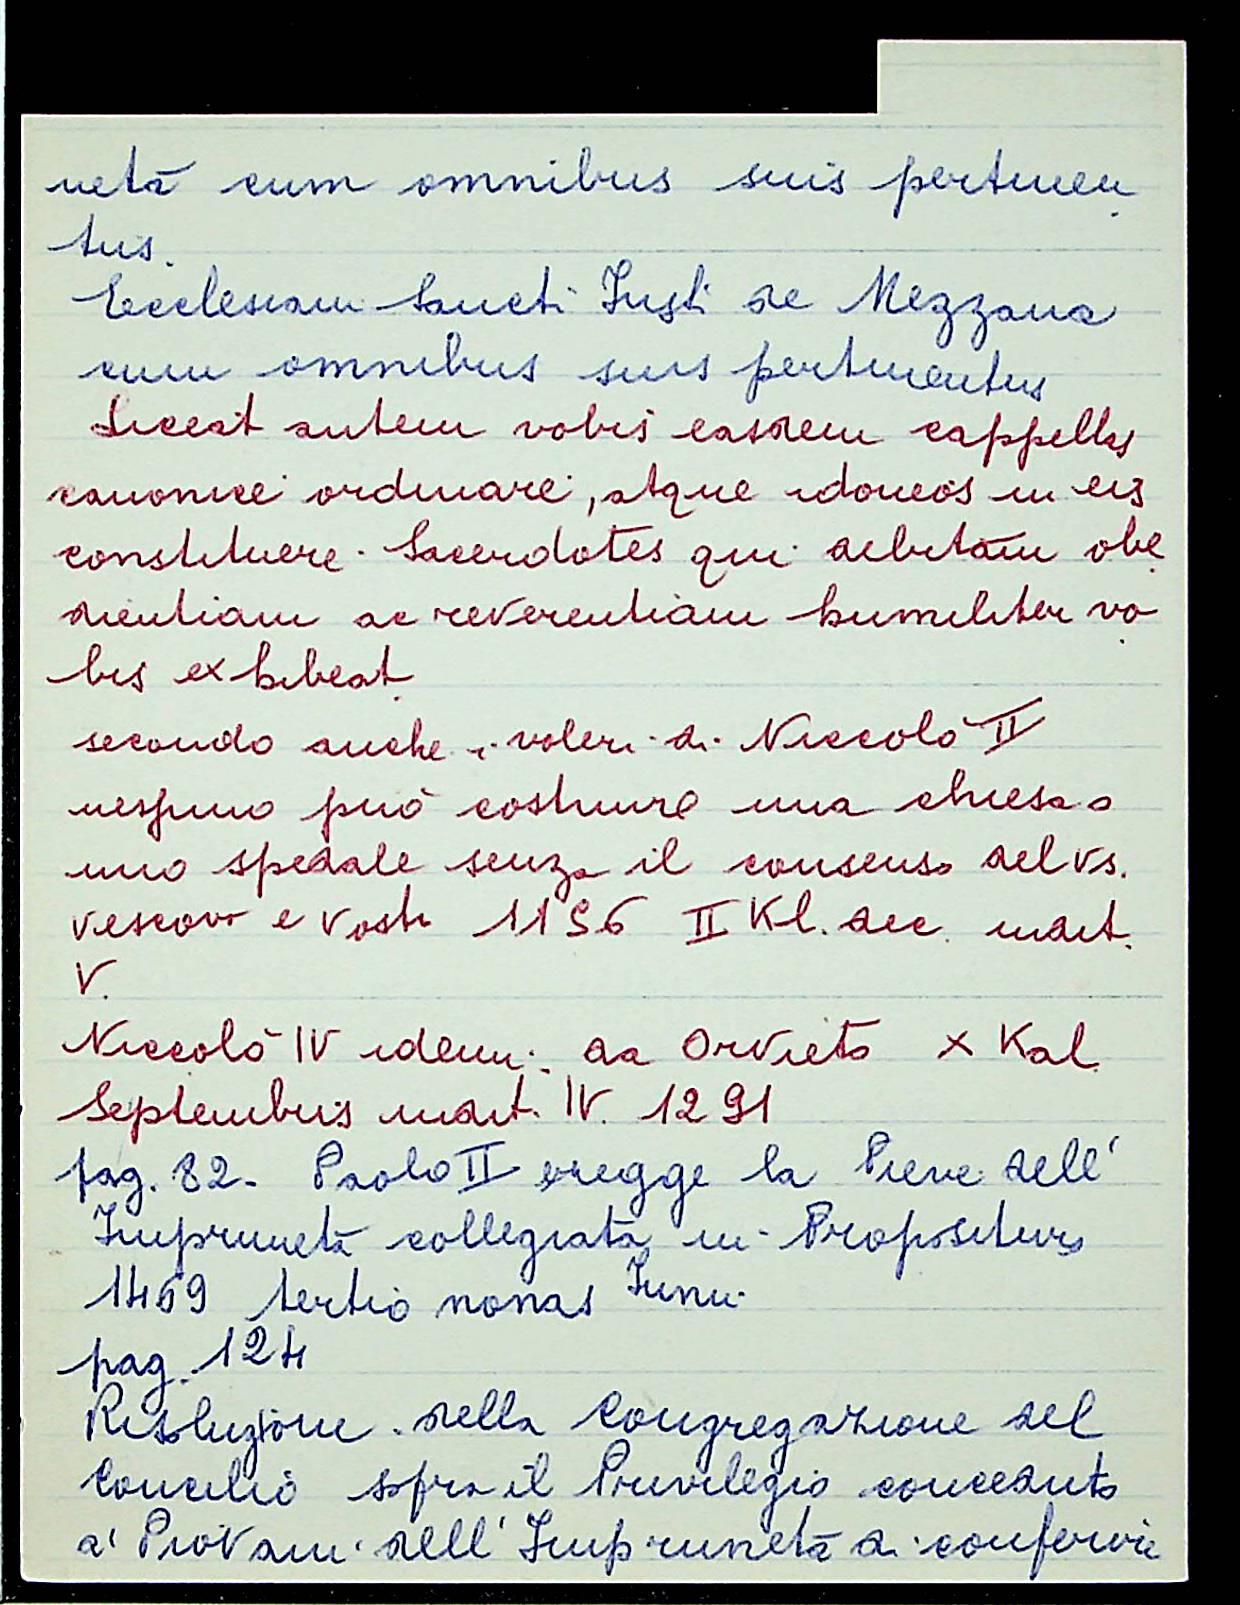 netà cum omnibus suis pertinen
tiis.
Ecclesiam Sancti Iusti de Mezzana
cum omnibus suis pertinentiis
Liceat autem vobis easdem cappellas
canonice ordinare, atque idoneos in eis
constituere Sacerdotes qui debitam obe
dientiam ac reverentiam humiliter vo
bis exhibeat
secondo anche i voleri di Niccolò II
nessuno può costruire una chiesa o
uno spedale senza il consenso del vs.
vescovo e vostro 1156 II Kl. dec. indict.
V.
Niccolò IV idem. da Orvieto X Kal
Septembris indict. IV. 1291
pag. 82- Paolo II eregge la Pieve dell'
Impruneta collegiata in Propositura
1469 tertio nonas Iunii
pag. 124
Risoluzione della Congregazione del
Concilio sopra il Privilegio conceduto
a' Piovani dell' Impruneta di conferire